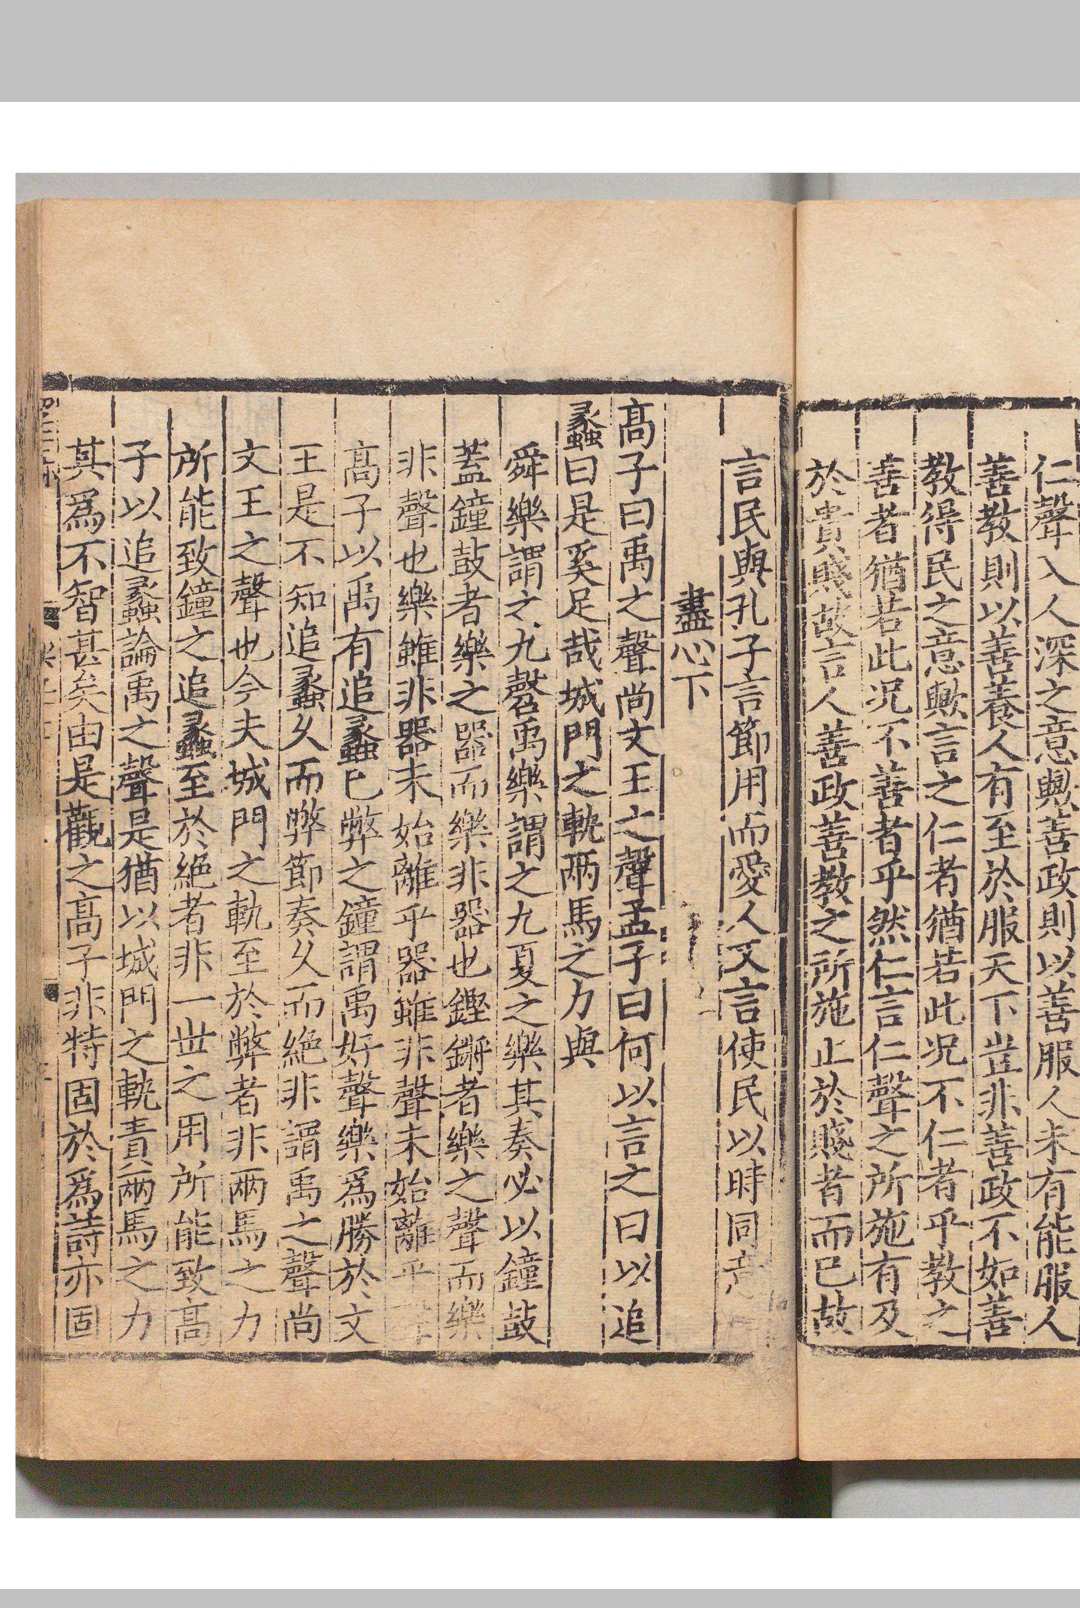 仁聲入人深之意歟善政則以善服人未有能服人
善教則以善養人有至於服天下豈非善政不如善
教得民之意歟言之仁者猶若此况不仁者乎教之
善者猶若此况不善者乎然仁言仁聲之所施有及
於貴賤故言人善政善教之所施止於賤者而已故
言民與孔子言節用而愛人又言使民以時同意
盡心下
高子曰禹之聲尚文王之聲孟子曰何以言之曰以追
蠡曰是奚足哉城門之軌兩馬之力與
舜樂謂之九磬禹樂謂之九夏之樂其奏必以鐘鼓
蓋鐘鼓者樂之器而樂非器也鏗鏘者樂之聲而樂
非聲也樂雖非器未始離乎器雖非聲未始離乎
高子以禹有追蠡已弊之鐘謂禹好聲樂爲勝於文
王是不知追蠡久而弊節奏久而絶非謂禹之聲尚
文王之聲也今夫城門之軌至於弊者非兩馬之力
所能致鐘之追蠡至於絶者非一世之用所能致高
子以追蠡論禹之聲是猶以城門之軌責兩馬之力
其爲不智甚矣由是觀之高子非特固於爲詩亦固